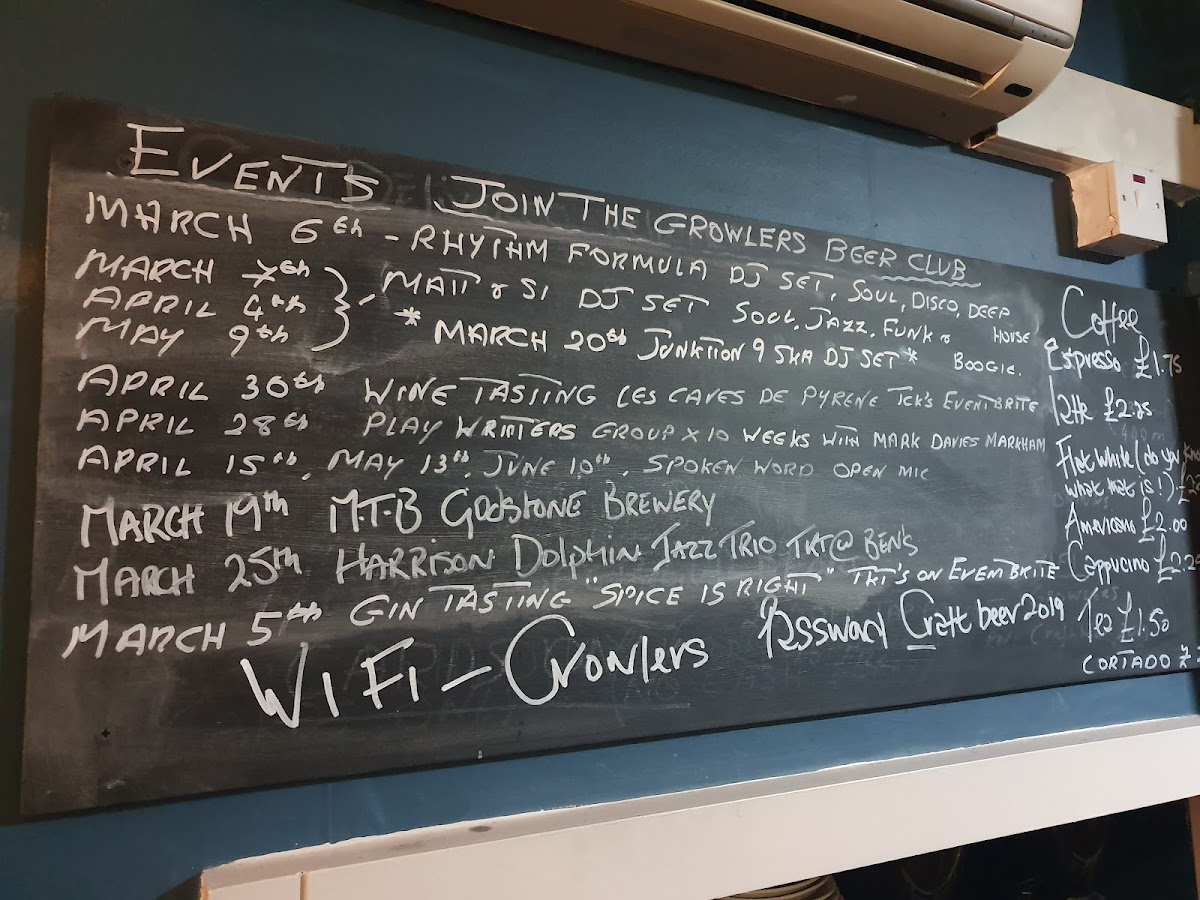 EVENTS JOIN THE GROWLERS BEER CLUB
MARCH 6th - RHYTHM FORMULA DJ SET, SOUL, DISCO, DEEP HOUSE
MARCH 7th
APRIL 4th
MAY 9th
} - MATT & SI DJ SET SOUL, JAZZ, FUNK & BOOGIE.
* MARCH 20th JUNKTION 9 SKA DJ SET *
APRIL 30th WINE TASTING LES CAVES DE PYRENE TCK'S EVENTBRITE
APRIL 28th PLAY WRITERS GROUP X 10 WEEKS WITH MARK DAVIES MARKHAM
APRIL 15th, MAY 13th, JUNE 10th, SPOKEN WORD OPEN MIC
MARCH 19th M.T.B GODSTONE BREWERY
MARCH 25th HARRISON DOLPHIN JAZZ TRIO TKT@ BEN'S
MARCH 5th GIN TASTING "SPICE IS RIGHT" TKT'S ON EVENTBRITE
WIFI - Growlers Password Craftbeer2019
Coffee
Espresso £1.75
latte £2.25
Flat white (do you know
what that is!)
Americano £2.00
Cappucino £2.25
Tea £1.50
CORTADO